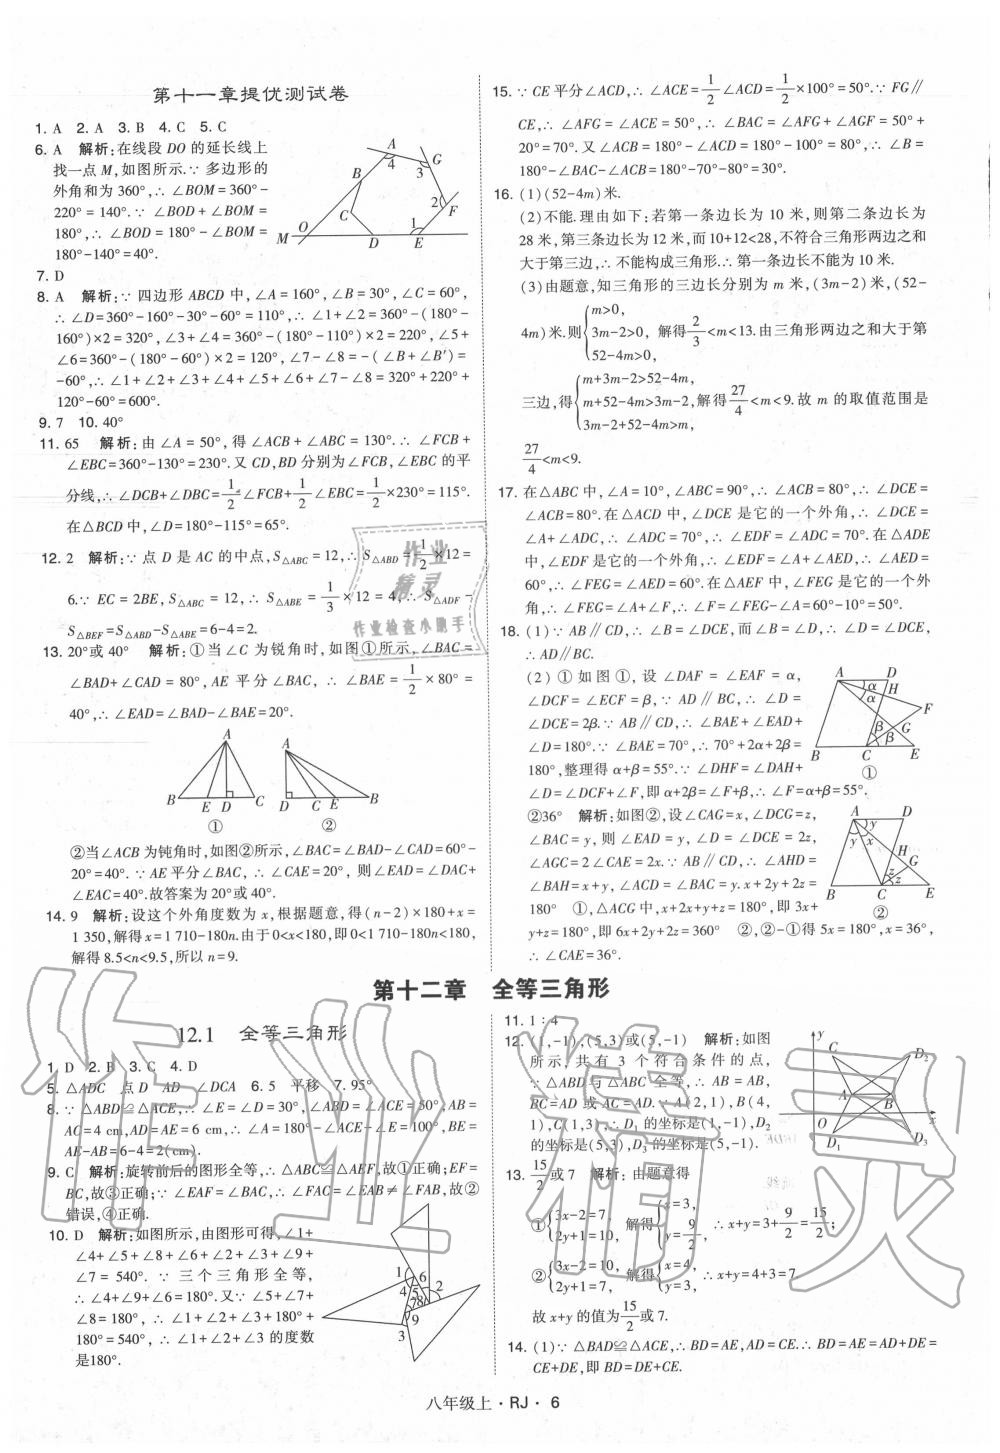 第十一章提优测试卷
1. A  2. A  3. B  4. C  5. C
6. A  解析:在线段 DO 的延长线上
找一点 M,如图所示.∵ 多边形的
外角和为 360°,∴ ∠BOM=360°-
220° = 140°.∵ ∠BOD + ∠BOM =
180°,∴ ∠BOD = 180° - ∠BOM =
180°-140°=40°.
A
4
G
3
B
2
F
C
1
M
O
D
E
7. D
8. A  解析:∵ 四边形 ABCD 中,∠A=160°,∠B=30°,∠C=60°,
∴ ∠D=360°-160°-30°-60°=110°,∴ ∠1+∠2=360°-(180°-
160°)×2=320°,∠3+∠4=360°-(180°-110°)×2=220°,∠5+
∠6=360°-(180°-60°)×2=120°,∠7-∠8=-(∠B+∠B′)=
-60°,∴ ∠1+∠2+∠3+∠4+∠5+∠6+∠7-∠8=320°+220°+
120°-60°=600°.
9. 7  10. 40°
11. 65  解析:由 ∠A=50°,得 ∠ACB+∠ABC=130°.∴ ∠FCB+
∠EBC=360°-130°=230°.又 CD,BD 分别为∠FCB,∠EBC 的平
分线,∴ ∠DCB+∠DBC=1/2∠FCB+1/2∠EBC=1/2×230°=115°.
在△BCD 中,∠D=180°-115°=65°.
12. 2  解析:∵ 点 D 是 AC 的中点,S△ABC=12,∴ S△ABD=1/2×12=
6.∵ EC=2BE,S△ABC=12,∴ S△ABE=1/3×12=4,∴ S△ADF-
S△BEF=S△ABD-S△ABE=6-4=2.
13. 20°或 40°  解析:①当∠C 为锐角时,如图①所示,∠BAC=
∠BAD+∠CAD=80°,AE 平分∠BAC,∴ ∠BAE=1/2×80°=
40°,∴ ∠EAD=∠BAD-∠BAE=20°.
A
B E D C
①
A
D C E B
②
②当∠ACB 为钝角时,如图②所示,∠BAC=∠BAD-∠CAD=60°-
20°=40°.∵ AE平分∠BAC,∴ ∠CAE=20°,则∠EAD=∠DAC+
∠EAC=40°.故答案为 20°或 40°.
14. 9  解析:设这个外角度数为 x,根据题意,得(n-2)×180+x=
1 350,解得 x=1 710-180n.由于 0<x<180,即 0<1 710-180n<180,
解得 8.5<n<9.5,所以 n=9.
15. ∵ CE 平分∠ACD,∴ ∠ACE=1/2∠ACD=1/2×100°=50°.∵ FG∥
CE,∴ ∠AFG=∠ACE=50°,∴ ∠BAC=∠AFG+∠AGF=50°+
20°=70°.又∠ACB=180°-∠ACD=180°-100°=80°,∴ ∠B=
180°-∠BAC-∠ACB=180°-70°-80°=30°.
16. (1)(52-4m)米.
(2)不能.理由如下:若第一条边长为 10 米,则第二条边长为
28 米,第三条边长为 12 米,而 10+12<28,不符合三角形两边之和
大于第三边,∴ 不能构成三角形.∴ 第一条边长不能为 10 米.
(3)由题意,知三角形的三边长分别为 m 米,(3m-2)米,(52-
4m)米.则{m>0, 3m-2>0, 52-4m>0, 解得 2/3<m<13.由三角形两边之和大于第
三边,得{m+3m-2>52-4m, m+52-4m>3m-2, 3m-2+52-4m>m, 解得 27/4<m<9.故 m 的取值范围是
27/4<m<9.
17. 在△ABC 中,∠A=10°,∠ABC=90°,∴ ∠ACB=80°,∴ ∠DCE=
∠ACB=80°.在△ACD 中,∠DCE 是它的一个外角,∴ ∠DCE=
∠A+∠ADC,∴ ∠ADC=70°,∴ ∠EDF=∠ADC=70°.在△ADE
中,∠EDF 是它的一个外角,∴ ∠EDF=∠A+∠AED,∴ ∠AED=
60°,∴ ∠FEG=∠AED=60°.在△AEF 中,∠FEG 是它的一个外
角,∴ ∠FEG=∠A+∠F,∴ ∠F=∠FEG-∠A=60°-10°=50°.
18. (1)∵ AB∥CD,∴ ∠B=∠DCE,而∠B=∠D,∴ ∠D=∠DCE,
∴ AD∥BC.
(2) ① 如图 ①,设 ∠DAF = ∠EAF = α,
∠DCF=∠ECF=β,∵ AD∥BC,∴ ∠D=
∠DCE=2β.∵ AB∥CD,∴ ∠BAE+∠EAD+
∠D=180°.∵ ∠BAE=70°,∴ 70°+2α+2β=
180°,整理得 α+β=55°.∵ ∠DHF=∠DAH+
∠D=∠DCF+∠F,即 α+2β=∠F+β,∴ ∠F=α+β=55°.
A D
α H
α
F
β G
β
B C E
①
②36°  解析:如图②,设∠CAG=x,∠DCG=z,
∠BAC=y,则∠EAD=y,∠D=∠DCE=2z,
∠AGC=2∠CAE=2x.∵ AB∥CD,∴ ∠AHD=
∠BAH=x+y,∠ACD=∠BAC=y.x+2y+2z=
180°  ①,∠ACG 中,x+2x+y+z=180°,即 3x+
y+z=180°,即 6x+2y+2z=360°  ②,②-①得 5x=180°,x=36°,
∴ ∠CAE=36°.
A D
y
y x H
G
z
z
B C E
②
第十二章  全等三角形
12.1  全等三角形
1. D  2. B  3. C  4. D
5. △ADC  点 D  AD  ∠DCA  6. 5  平移  7. 95°
8. ∵ △ABD≌△ACE,∴ ∠E=∠D=30°,∠ABD=∠ACE=50°,AB=
AC=4 cm,AD=AE=6 cm,∴ ∠A=180°-∠ACE-∠E=100°,BE=
AE-AB=6-4=2(cm).
9. C  解析:旋转前后的图形全等,∴ △ABC≌△AEF,故①正确;EF=
BC,故③正确;∵ ∠EAF=∠BAC,∴ ∠FAC=∠EAB≠∠FAB,故②
错误,④正确.
10. D  解析:如图所示,由图形可得,∠1+
∠4+∠5+∠8+∠6+∠2+∠3+∠9+
∠7 = 540°. ∵ 三个三角形全等,
∴ ∠4+∠9+∠6=180°.又∵ ∠5+∠7+
∠8=180°,∴ ∠1+∠2+∠3+180°+
180°=540°,∴ ∠1+∠2+∠3 的度数
是180°.
1
6
4
5
2
7
8
9
3
11. 1∶4
12. (1,-1),(5,3)或(5,-1)  解析:如图
所示,共有 3 个符合条件的点,
∵ △ABD 与△ABC 全等,∴ AB=AB,
BC=AD 或 AC=AD.∵ A(2,1),B(4,
1),C(1,3),∴ D₁ 的坐标是(1,-1),D₂
的坐标是(5,3),D₃ 的坐标是(5,-1).
y
C
D₂
A
B
O
x
D₁
D₃
13. 15/2或 7  解析:由题意得
①{3x-2=7, 2y+1=10, 解得{x=3, y=9/2, ∴ x+y=3+9/2=15/2;
②{3x-2=10, 2y+1=7, 解得{x=4, y=3, ∴ x+y=4+3=7.
故 x+y 的值为15/2或 7.
14. (1)∵ △BAD≌△ACE,∴ BD=AE,AD=CE.∴ BD=AE=AD+DE=
CE+DE,即 BD=DE+CE.
作业
精灵
作业检查小助手
作业精灵
八年级上·RJ·6